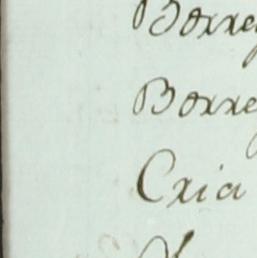 Borre
Borre
Cria